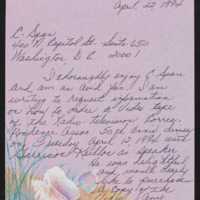 April 22, 1994
C. Span
400 N. Capitol St. Suite 650
Washington D.C. 20001
I thoroughly enjoy C Span
and am an avid fan. I am
writing to request information
on how to order a video tape
of the Radio-television Corres-
pondence Assoc. 50th anni dinner
on Tuesday April 12, 1994 with
Garrison Keillor as speaker
He was delightful
and would dearly
like to purchase
a copy of the